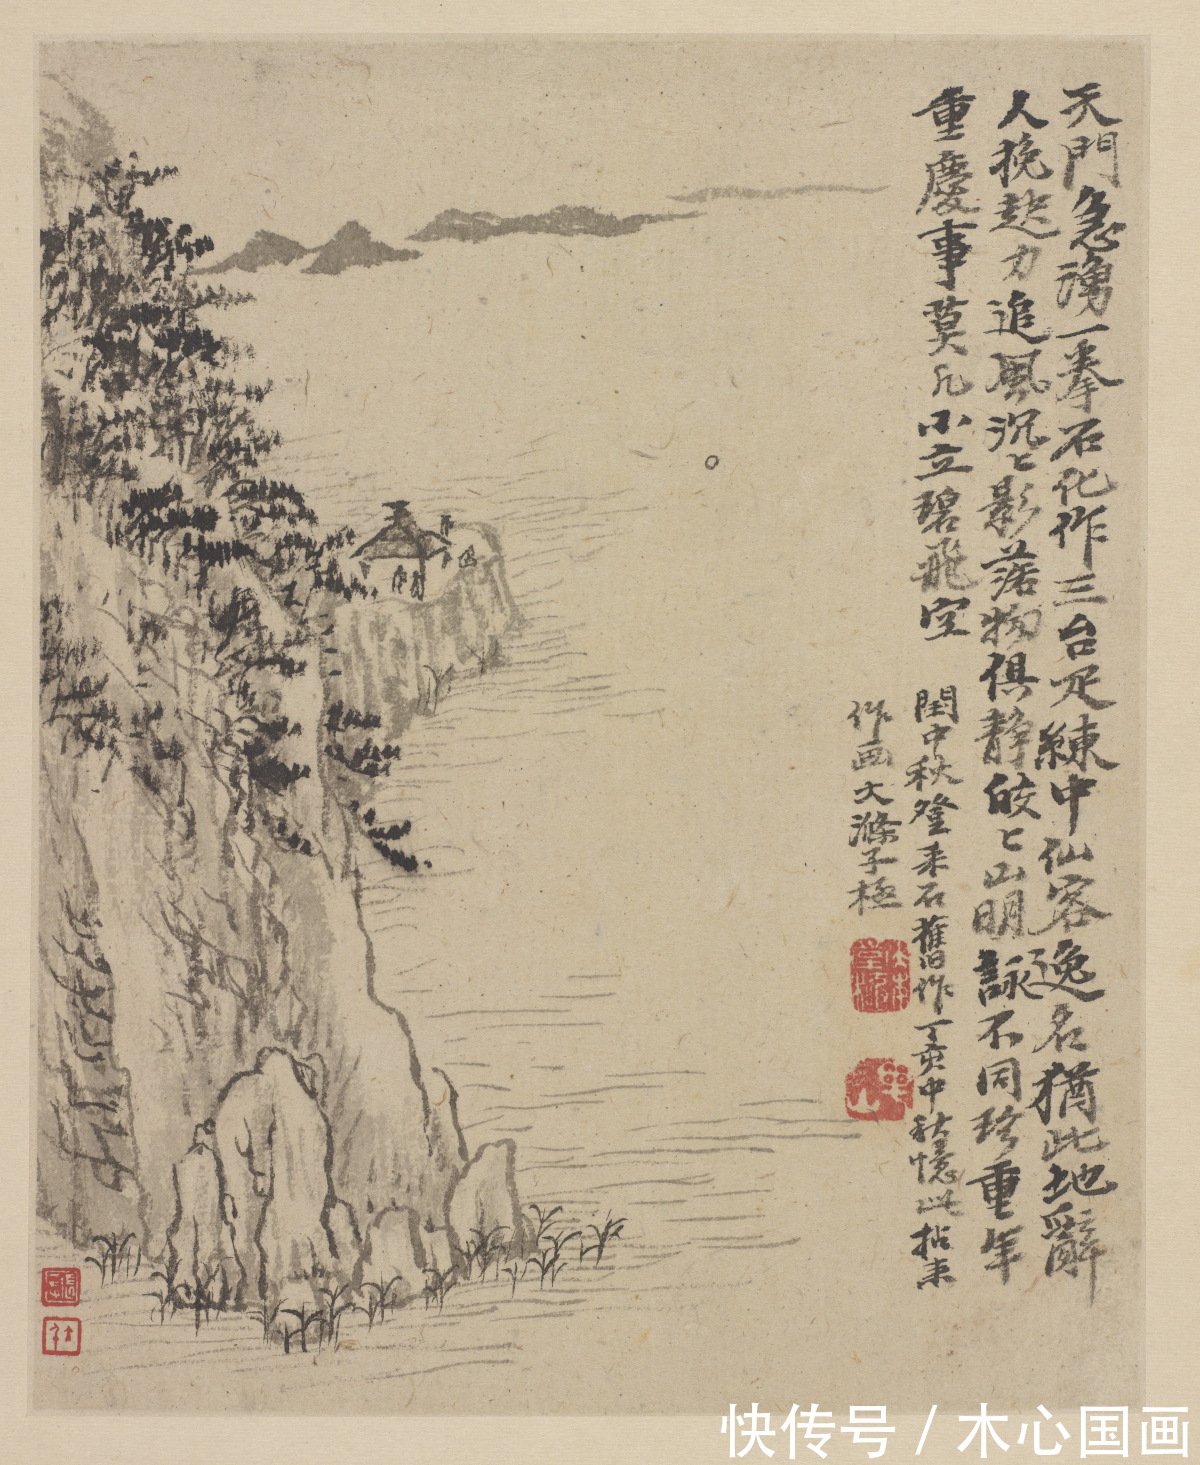 天門急湧一拳石化作三台疋練中仙客逸名猶此地辭
人挽起力追風沉〻影落物俱静皎〻山明詠不同珍重年
重慶事莫凡小立碧飛空
閏中秋登采石舊作丁亥中秋憶此拈来
作画大滌子極
快传号 / 木心国画